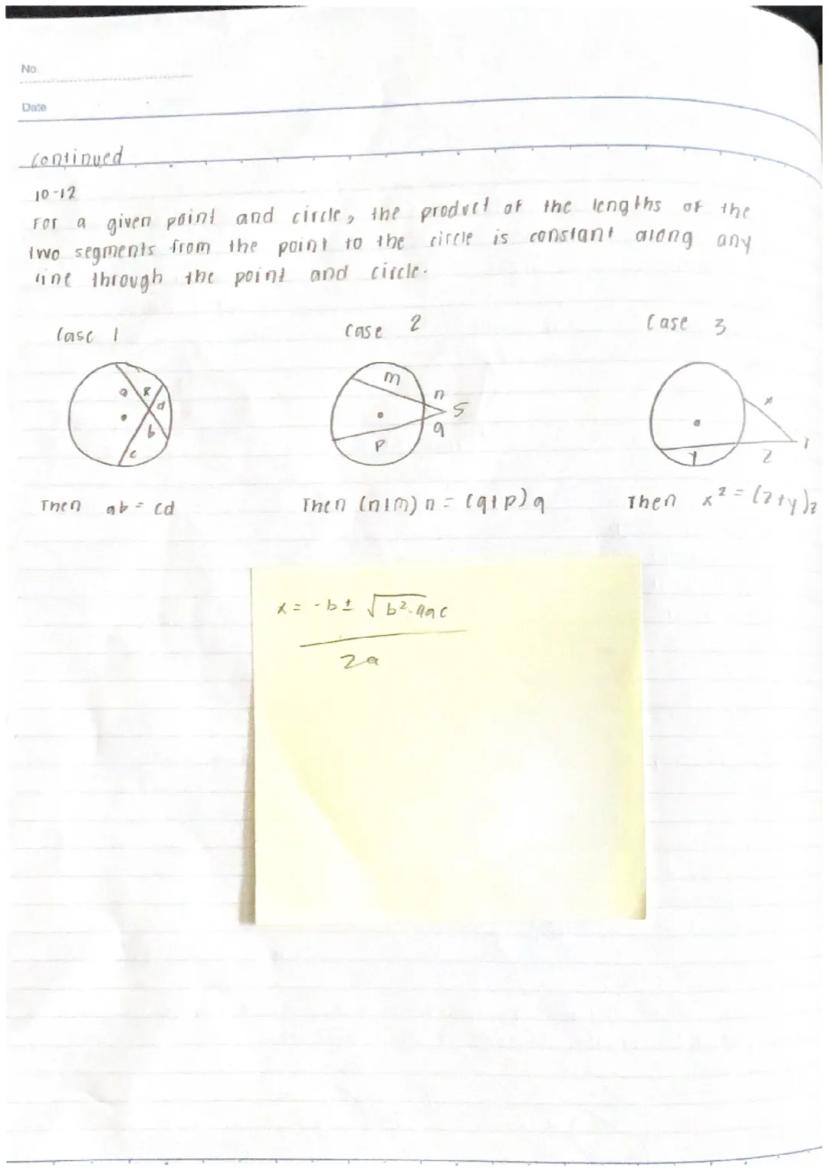 No.
Date
continued
10-12
For a given point and circle, the product of the lengths of the
two segments from the point to the circle is constant along any
line through the point and circle.
Case 1
Case 2
Case 3
a R d
b
c
m n
S
p q
x
y z
Then ab = cd
Then (n+m) n = (q+p) q
Then x² = (z+y)z
x = -b ± √b²-4ac
2a